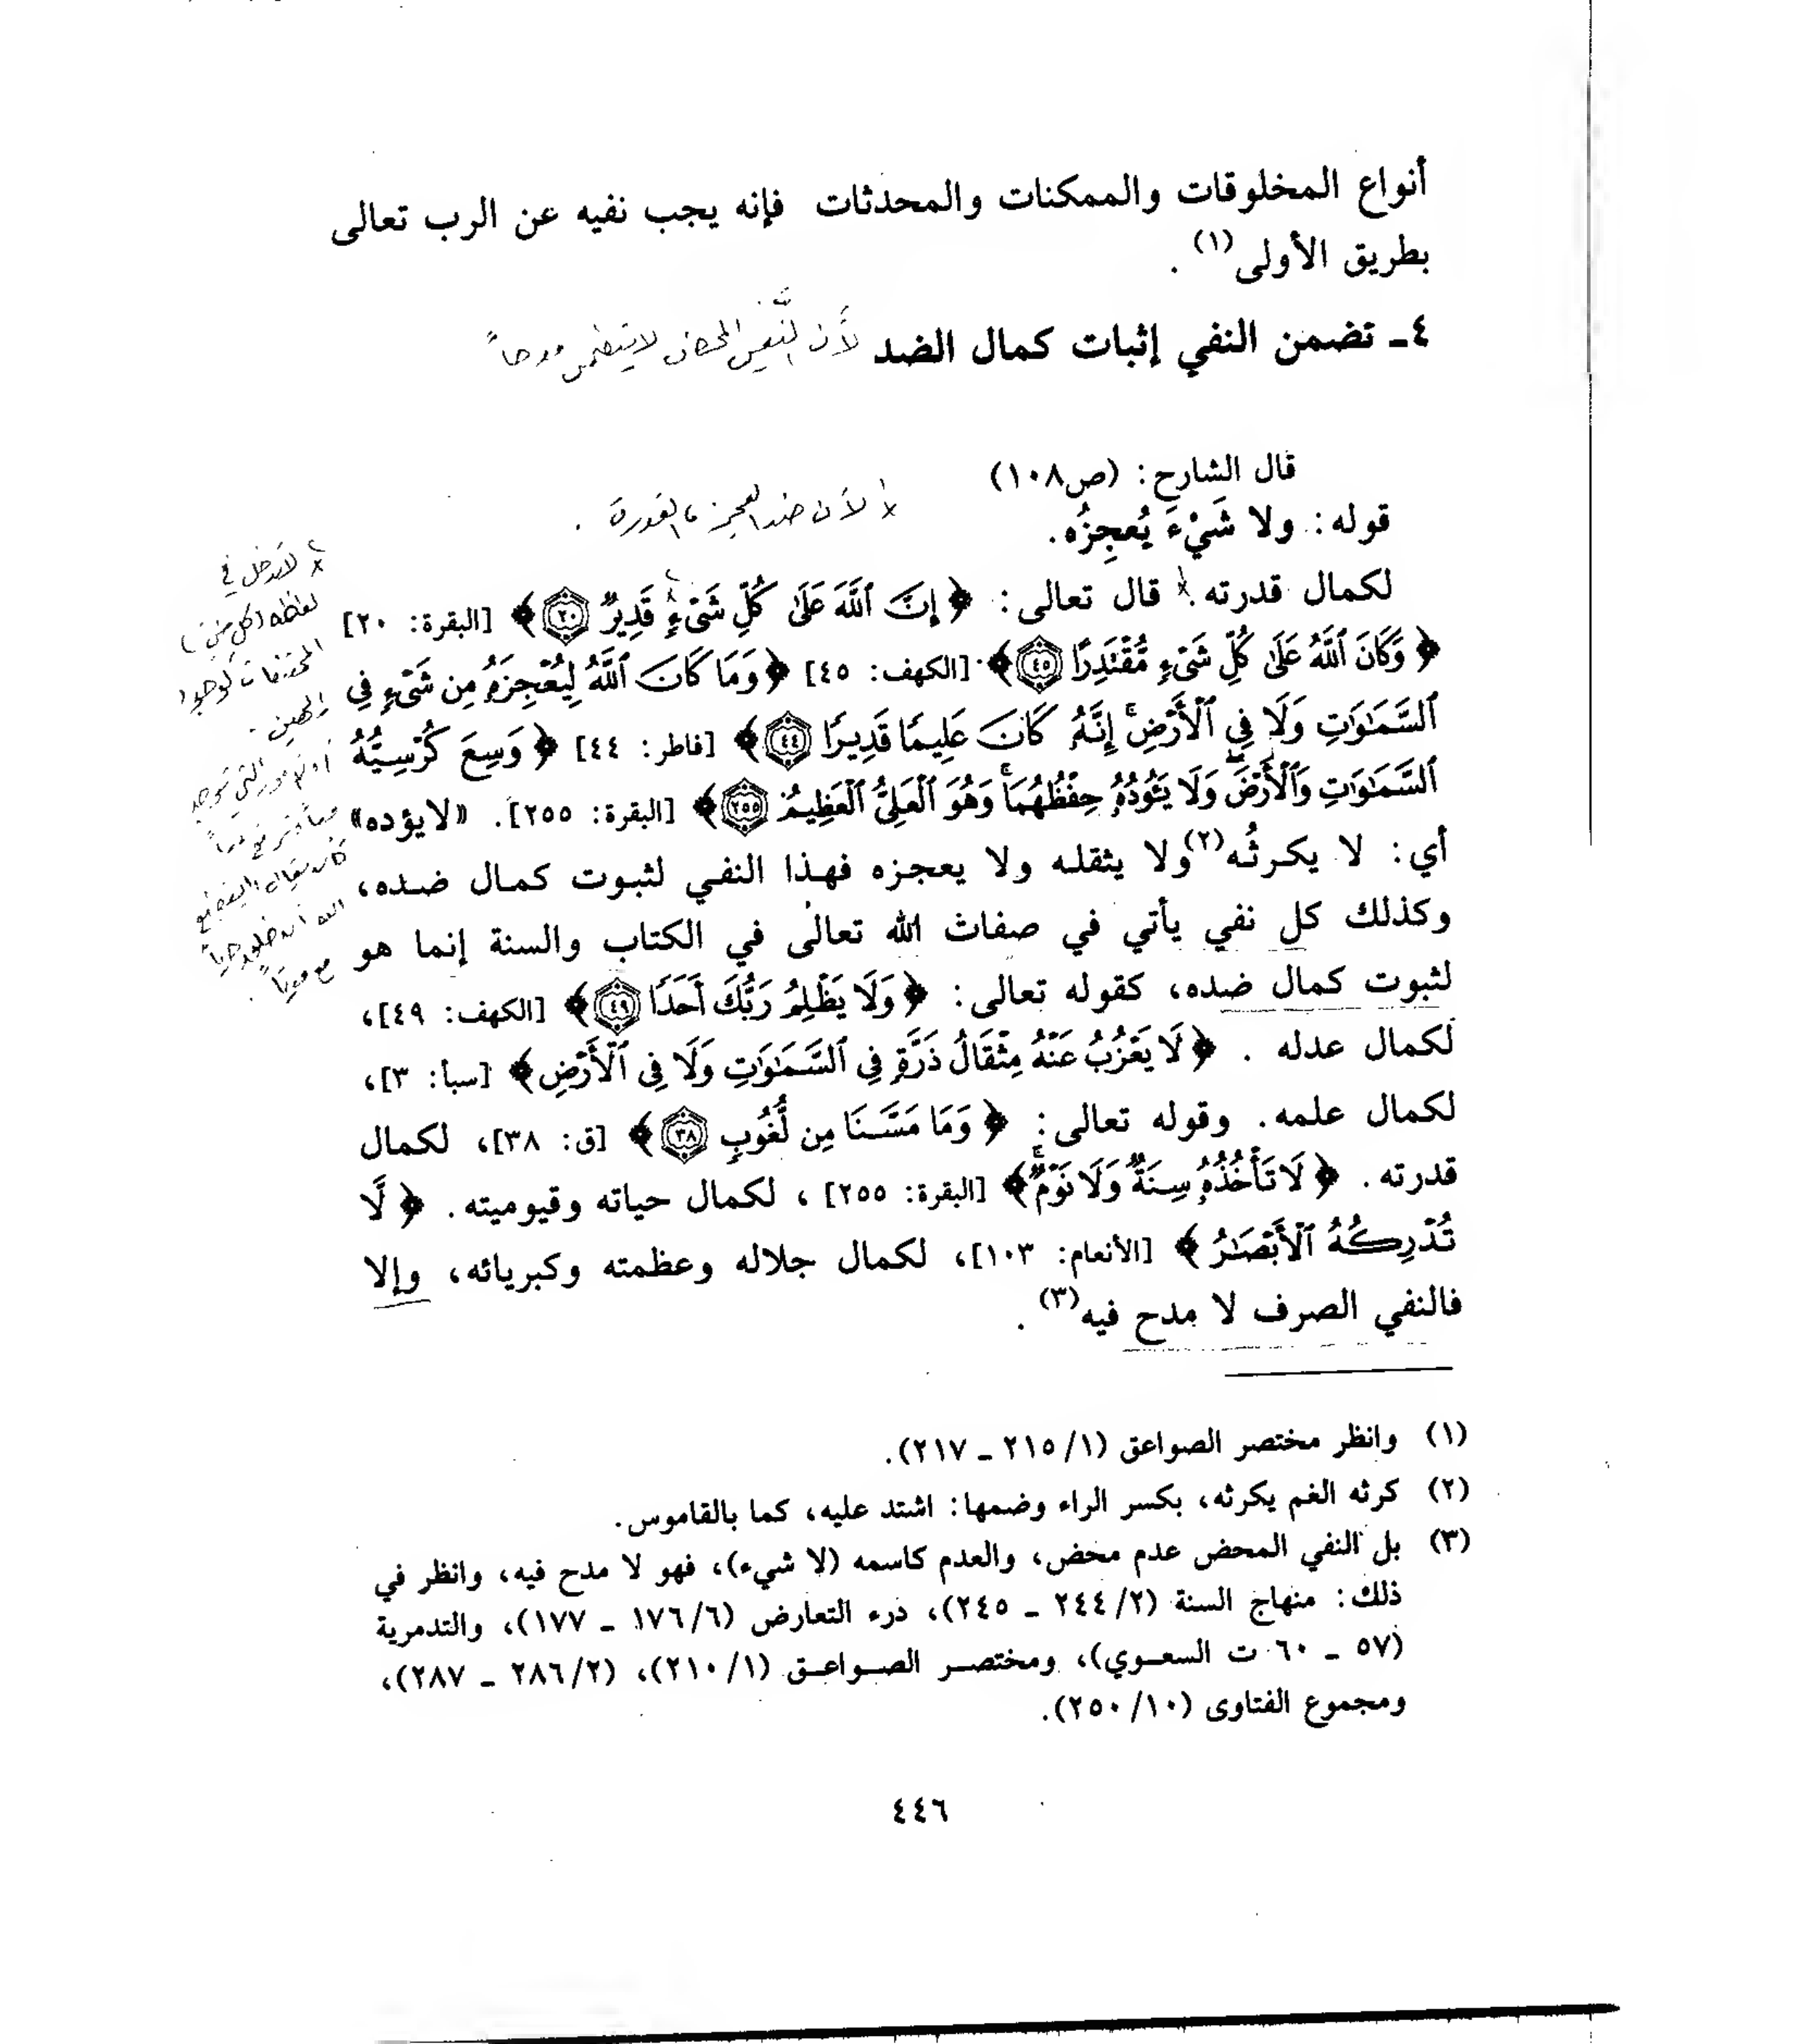 أنواع المخلوقات والممكنات والمحدثات فإنه يجب نفيه عن الرب تعالى
بطريق الأولى(١) .
٤ـ تضمن النفي إثبات كمال الضد لأن النفي المحض لا يتضمن مدحاً
قال الشارح: (ص١٠٨)
لأن ضد العجز القدرة .
قوله: ولا شَيْءَ يُعجِزُه.
لكمال قدرته. قال تعالى: ﴿ إِنَّ ٱللَّهَ عَلَىٰ كُلِّ شَىْءٍ قَدِيرٌ ٢٠ ﴾ [البقرة: ٢٠]
﴿ وَكَانَ ٱللَّهُ عَلَىٰ كُلِّ شَىْءٍ مُّقْتَدِرًا ٤٥ ﴾ [الكهف: ٤٥] ﴿ وَمَا كَانَ ٱللَّهُ لِيُعْجِزَهُۥ مِن شَىْءٍ فِى
ٱلسَّمَٰوَٰتِ وَلَا فِى ٱلْأَرْضِ ۚ إِنَّهُۥ كَانَ عَلِيمًا قَدِيرًا ٤٤ ﴾ [فاطر: ٤٤] ﴿ وَسِعَ كُرْسِيُّهُ
ٱلسَّمَٰوَٰتِ وَٱلْأَرْضَ ۖ وَلَا يَـُٔودُهُۥ حِفْظُهُمَا ۚ وَهُوَ ٱلْعَلِىُّ ٱلْعَظِيمُ ٢٥٥ ﴾ [البقرة: ٢٥٥]. «لايؤده»
أي: لا يكرثُه(٢) ولا يثقله ولا يعجزه فهذا النفي لثبوت كمال ضده،
وكذلك كل نفي يأتي في صفات الله تعالى في الكتاب والسنة إنما هو
لثبوت كمال ضده، كقوله تعالى: ﴿ وَلَا يَظْلِمُ رَبُّكَ أَحَدًا ٤٩ ﴾ [الكهف: ٤٩]،
لكمال عدله . ﴿ لَا يَعْزُبُ عَنْهُ مِثْقَالُ ذَرَّةٍ فِى ٱلسَّمَٰوَٰتِ وَلَا فِى ٱلْأَرْضِ ﴾ [سبأ: ٣]،
لكمال علمه. وقوله تعالى: ﴿ وَمَا مَسَّنَا مِن لُّغُوبٍ ٣٨ ﴾ [ق: ٣٨]، لكمال
قدرته . ﴿ لَا تَأْخُذُهُۥ سِنَةٌ وَلَا نَوْمٌ ۚ ﴾ [البقرة: ٢٥٥] ، لكمال حياته وقيوميته. ﴿ لَّا
تُدْرِكُهُ ٱلْأَبْصَٰرُ ﴾ [الأنعام: ١٠٣]، لكمال جلاله وعظمته وكبريائه، وإلا
فالنفي الصرف لا مدح فيه(٣) .
لا يدخل في
(١) وانظر مختصر الصواعق (١/ ٢١٥ ـ ٢١٧).
(٢) كرثه الغم يكرثه، بكسر الراء وضمها: اشتد عليه، كما بالقاموس.
(٣) بل النفي المحض عدم محض، والعدم كاسمه (لا شيء)، فهو لا مدح فيه، وانظر في
ذلك: منهاج السنة (٢/ ٢٤٤ ـ ٢٤٥)، درء التعارض (٦/ ١٧٦ ـ ١٧٧)، والتدمرية
(٥٧ ـ ٦٠ ت السعوي)، ومختصر الصواعق (١/ ٢١٠)، (٢/ ٢٨٦ ـ ٢٨٧)،
ومجموع الفتاوى (١٠/ ٢٥٠).
٤٤٦